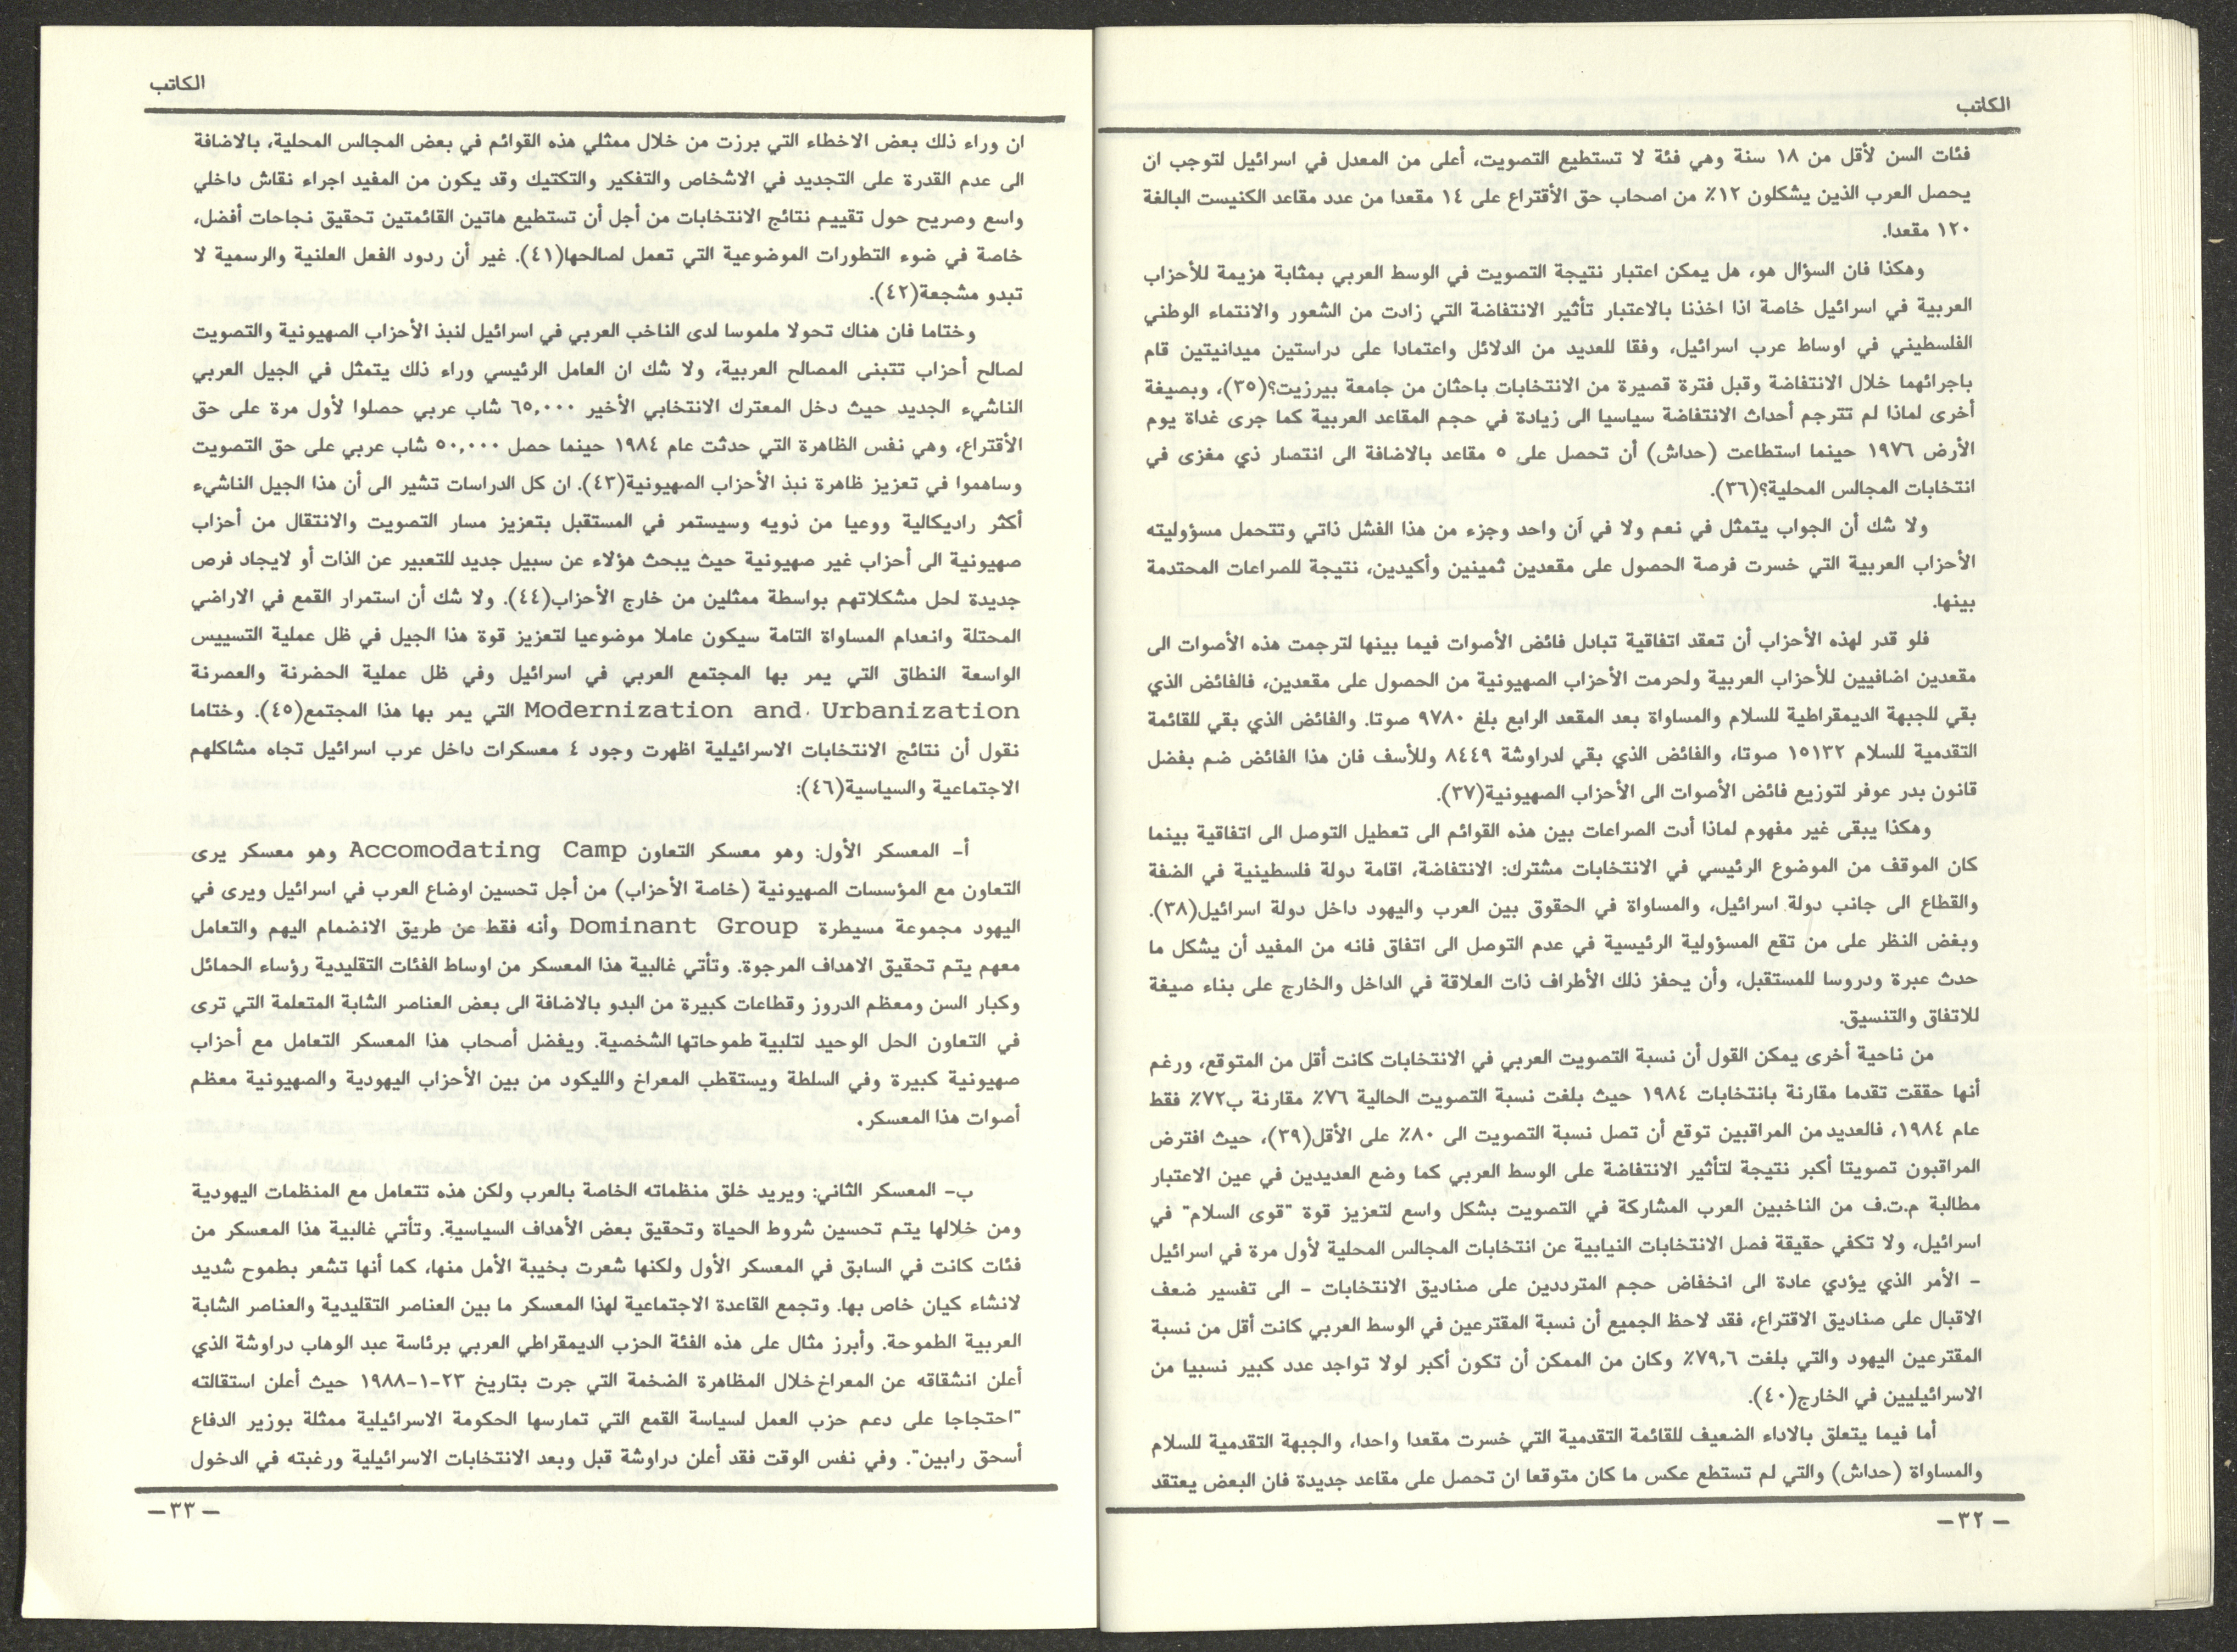 الكاتب
فئات السن لأقل من ١٨ سنة وهي فئة لا تستطيع التصويت، أعلى من المعدل في اسرائيل لتوجب ان
يحصل العرب الذين يشكلون ١٢٪ من اصحاب حق الأقتراع على ١٤ مقعدا من عدد مقاعد الكنيست البالغة
١٢٠ مقعدا.
وهكذا فان السؤال هو، هل يمكن اعتبار نتيجة التصويت في الوسط العربي بمثابة هزيمة للأحزاب
العربية في اسرائيل خاصة اذا اخذنا بالاعتبار تأثير الانتفاضة التي زادت من الشعور والانتماء الوطني
الفلسطيني في اوساط عرب اسرائيل، وفقا للعديد من الدلائل واعتمادا على دراستين ميدانيتين قام
باجرائهما خلال الانتفاضة وقبل فترة قصيرة من الانتخابات باحثان من جامعة بيرزيت؟(٣٥)، وبصيغة
أخرى لماذا لم تترجم أحداث الانتفاضة سياسيا الى زيادة في حجم المقاعد العربية كما جرى غداة يوم
الأرض ١٩٧٦ حينما استطاعت (حداش) أن تحصل على ٥ مقاعد بالاضافة الى انتصار ذي مغزى في
انتخابات المجالس المحلية؟(٣٦).
ولا شك أن الجواب يتمثل في نعم ولا في آن واحد وجزء من هذا الفشل ذاتي وتتحمل مسؤوليته
الأحزاب العربية التي خسرت فرصة الحصول على مقعدين ثمينين وأكيدين، نتيجة للصراعات المحتدمة
بينها.
فلو قدر لهذه الأحزاب أن تعقد اتفاقية تبادل فائض الأصوات فيما بينها لترجمت هذه الأصوات الى
مقعدين اضافيين للأحزاب العربية ولحرمت الأحزاب الصهيونية من الحصول على مقعدين، فالفائض الذي
بقي للجبهة الديمقراطية للسلام والمساواة بعد المقعد الرابع بلغ ٩٧٨٠ صوتا. والفائض الذي بقي للقائمة
التقدمية للسلام ١٥١٣٢ صوتا، والفائض الذي بقي لدراوشة ٨٤٤٩ وللأسف فان هذا الفائض ضم بفضل
قانون بدر عوفر لتوزيع فائض الأصوات الى الأحزاب الصهيونية(٣٧).
وهكذا يبقى غير مفهوم لماذا أدت الصراعات بين هذه القوائم الى تعطيل التوصل الى اتفاقية بينما
كان الموقف من الموضوع الرئيسي في الانتخابات مشترك: الانتفاضة، اقامة دولة فلسطينية في الضفة
والقطاع الى جانب دولة اسرائيل، والمساواة في الحقوق بين العرب واليهود داخل دولة اسرائيل(٣٨).
وبغض النظر على من تقع المسؤولية الرئيسية في عدم التوصل الى اتفاق فانه من المفيد أن يشكل ما
حدث عبرة ودروسا للمستقبل، وأن يحفز ذلك الأطراف ذات العلاقة في الداخل والخارج على بناء صيغة
للاتفاق والتنسيق.
من ناحية أخرى يمكن القول أن نسبة التصويت العربي في الانتخابات كانت أقل من المتوقع، ورغم
أنها حققت تقدما مقارنة بانتخابات ١٩٨٤ حيث بلغت نسبة التصويت الحالية ٧٦٪ مقارنة ب٧٢٪ فقط
عام ١٩٨٤، فالعديد من المراقبين توقع أن تصل نسبة التصويت الى ٨٠٪ على الأقل(٣٩)، حيث افترض
المراقبون تصويتا أكبر نتيجة لتأثير الانتفاضة على الوسط العربي كما وضع العديدين في عين الاعتبار
مطالبة م.ت.ف من الناخبين العرب المشاركة في التصويت بشكل واسع لتعزيز قوة "قوى السلام" في
اسرائيل، ولا تكفي حقيقة فصل الانتخابات النيابية عن انتخابات المجالس المحلية لأول مرة في اسرائيل
- الأمر الذي يؤدي عادة الى انخفاض حجم المترددين على صناديق الانتخابات - الى تفسير ضعف
الاقبال على صناديق الاقتراع، فقد لاحظ الجميع أن نسبة المقترعين في الوسط العربي كانت أقل من نسبة
المقترعين اليهود والتي بلغت ٧٩,٦٪ وكان من الممكن أن تكون أكبر لولا تواجد عدد كبير نسبيا من
الاسرائيليين في الخارج(٤٠).
أما فيما يتعلق بالاداء الضعيف للقائمة التقدمية التي خسرت مقعدا واحدا، والجبهة التقدمية للسلام
والمساواة (حداش) والتي لم تستطع عكس ما كان متوقعا ان تحصل على مقاعد جديدة فان البعض يعتقد
- ٣٢ -
الكاتب
ان وراء ذلك بعض الاخطاء التي برزت من خلال ممثلي هذه القوائم في بعض المجالس المحلية، بالاضافة
الى عدم القدرة على التجديد في الاشخاص والتفكير والتكتيك وقد يكون من المفيد اجراء نقاش داخلي
واسع وصريح حول تقييم نتائج الانتخابات من أجل أن تستطيع هاتين القائمتين تحقيق نجاحات أفضل،
خاصة في ضوء التطورات الموضوعية التي تعمل لصالحها(٤١). غير أن ردود الفعل العلنية والرسمية لا
تبدو مشجعة(٤٢).
وختاما فان هناك تحولا ملموسا لدى الناخب العربي في اسرائيل لنبذ الأحزاب الصهيونية والتصويت
لصالح أحزاب تتبنى المصالح العربية، ولا شك ان العامل الرئيسي وراء ذلك يتمثل في الجيل العربي
الناشيء الجديد حيث دخل المعترك الانتخابي الأخير ٦٥,٠٠٠ شاب عربي حصلوا لأول مرة على حق
الأقتراع، وهي نفس الظاهرة التي حدثت عام ١٩٨٤ حينما حصل ٥٠,٠٠٠ شاب عربي على حق التصويت
وساهموا في تعزيز ظاهرة نبذ الأحزاب الصهيونية(٤٣). ان كل الدراسات تشير الى أن هذا الجيل الناشيء
أكثر راديكالية ووعيا من ذويه وسيستمر في المستقبل بتعزيز مسار التصويت والانتقال من أحزاب
صهيونية الى أحزاب غير صهيونية حيث يبحث هؤلاء عن سبيل جديد للتعبير عن الذات أو لايجاد فرص
جديدة لحل مشكلاتهم بواسطة ممثلين من خارج الأحزاب(٤٤). ولا شك أن استمرار القمع في الاراضي
المحتلة وانعدام المساواة التامة سيكون عاملا موضوعيا لتعزيز قوة هذا الجيل في ظل عملية التسييس
الواسعة النطاق التي يمر بها المجتمع العربي في اسرائيل وفي ظل عملية الحضرنة والعصرنة
Modernization and Urbanization التي يمر بها هذا المجتمع(٤٥). وختاما
نقول أن نتائج الانتخابات الاسرائيلية اظهرت وجود ٤ معسكرات داخل عرب اسرائيل تجاه مشاكلهم
الاجتماعية والسياسية(٤٦):
أ- المعسكر الأول: وهو معسكر التعاون Accomodating Camp وهو معسكر يرى
التعاون مع المؤسسات الصهيونية (خاصة الأحزاب) من أجل تحسين اوضاع العرب في اسرائيل ويرى في
اليهود مجموعة مسيطرة Dominant Group وأنه فقط عن طريق الانضمام اليهم والتعامل
معهم يتم تحقيق الاهداف المرجوة. وتأتي غالبية هذا المعسكر من اوساط الفئات التقليدية رؤساء الحمائل
وكبار السن ومعظم الدروز وقطاعات كبيرة من البدو بالاضافة الى بعض العناصر الشابة المتعلمة التي ترى
في التعاون الحل الوحيد لتلبية طموحاتها الشخصية. ويفضل أصحاب هذا المعسكر التعامل مع أحزاب
صهيونية كبيرة وفي السلطة ويستقطب المعراخ والليكود من بين الأحزاب اليهودية والصهيونية معظم
أصوات هذا المعسكر.
ب- المعسكر الثاني: ويريد خلق منظماته الخاصة بالعرب ولكن هذه تتعامل مع المنظمات اليهودية
ومن خلالها يتم تحسين شروط الحياة وتحقيق بعض الأهداف السياسية. وتأتي غالبية هذا المعسكر من
فئات كانت في السابق في المعسكر الأول ولكنها شعرت بخيبة الأمل منها، كما أنها تشعر بطموح شديد
لانشاء كيان خاص بها. وتجمع القاعدة الاجتماعية لهذا المعسكر ما بين العناصر التقليدية والعناصر الشابة
العربية الطموحة. وأبرز مثال على هذه الفئة الحزب الديمقراطي العربي برئاسة عبد الوهاب دراوشة الذي
أعلن انشقاقه عن المعراخ خلال المظاهرة الضخمة التي جرت بتاريخ ٢٣-١-١٩٨٨ حيث أعلن استقالته
"احتجاجا على دعم حزب العمل لسياسة القمع التي تمارسها الحكومة الاسرائيلية ممثلة بوزير الدفاع
أسحق رابين". وفي نفس الوقت فقد أعلن دراوشة قبل وبعد الانتخابات الاسرائيلية ورغبته في الدخول
- ٣٣ -